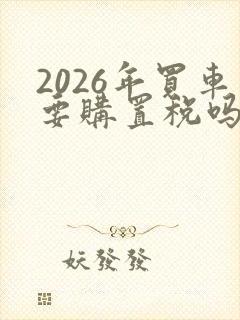 2026年買車
要購置稅吗
妖發發